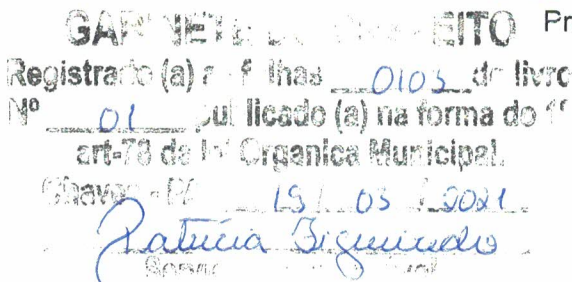 GABINETE DO PREFEITO Pr
Registrado (a) as folhas 0103 do livro
Nº 01 publicado (a) na forma do
art-78 da Lei Organica Municipal.
Chaves - 15 / 03 / 2021
Patrícia Figueiredo